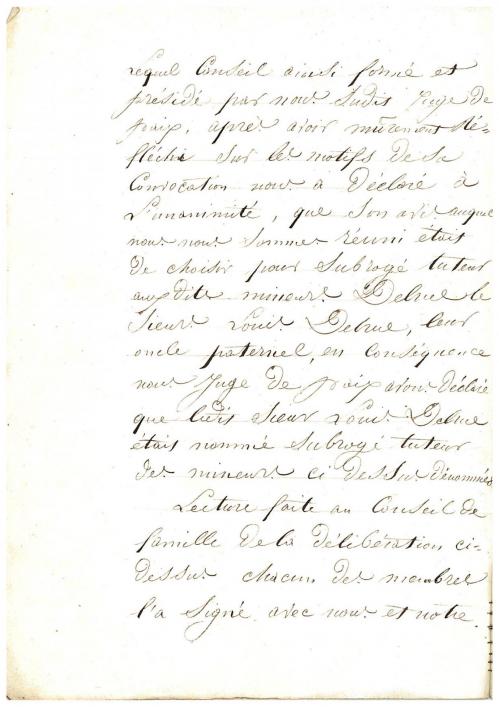 Lequel Conseil ainsi formé et
présidé par nous Susdit Juge de
paix, après avoir mûrement Ré=
fléchie Sur les motifs de sa
Convocation nous a Déclaré à
L'unanimité, que Son avis auquel
nous nous Sommes réuni était
de choisir pour Subrogé tuteur
aux dits mineurs Debrue le
Sieur Louis Debrue, leur
oncle paternel, en conséquence
nous Juge de paix avons déclaré
que ledit Sieur Louis Debrue
était nommé Subrogé tuteur
des mineurs ci dessus dénommés
Lecture faite au Conseil de
famille de la délibération ci-
dessus chacun des membres
l'a Signé avec nous et notre